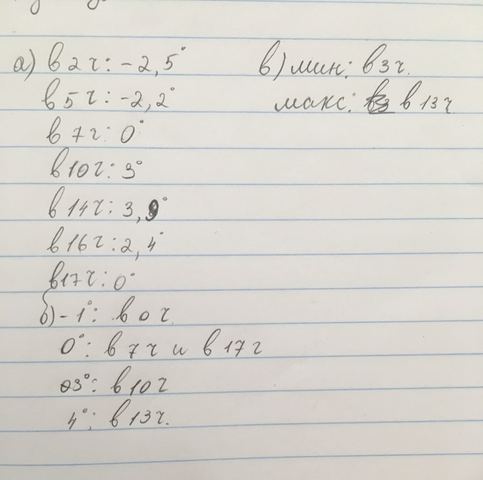 а) в 2 ч: -2,5°
в 5 ч: -2,2°
в 7 ч: 0°
в 10 ч: 3°
в 14 ч: 3,9°
в 16 ч: 2,4°
в 17 ч: 0°
б) -1°: в 0 ч
0°: в 7 ч и в 17 ч
3°: в 10 ч
4°: в 13 ч.
в) мин: в 3 ч.
макс: в 13 ч